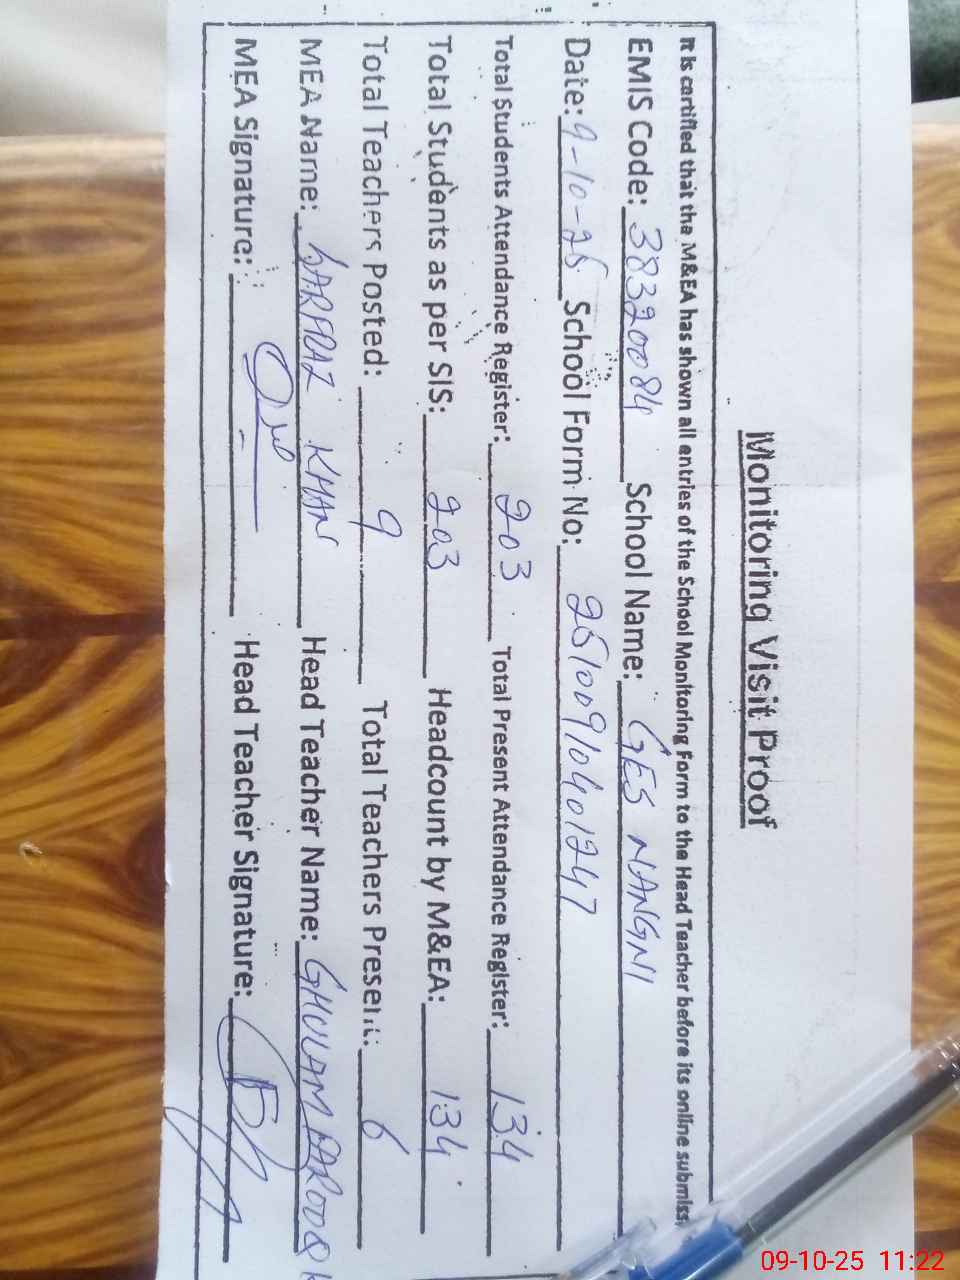 Monitoring Visit Proof
It is certified that the M&EA has shown all entries of the School Monitoring Form to the Head Teacher before its online submiss
EMIS Code: 38320084 School Name: GES NANGNI
Date: 9-10-25 School Form No: 25100910401247
Total Students Attendance Register: 203 Total Present Attendance Register: 134
Total Students as per SIS: 203 Headcount by M&EA: 134
Total Teachers Posted: 9 Total Teachers Present: 6
MEA Name: SARFRAZ KHAN Head Teacher Name: GHULAM FAROOQ
MEA Signature: Head Teacher Signature:
09-10-25 11:22